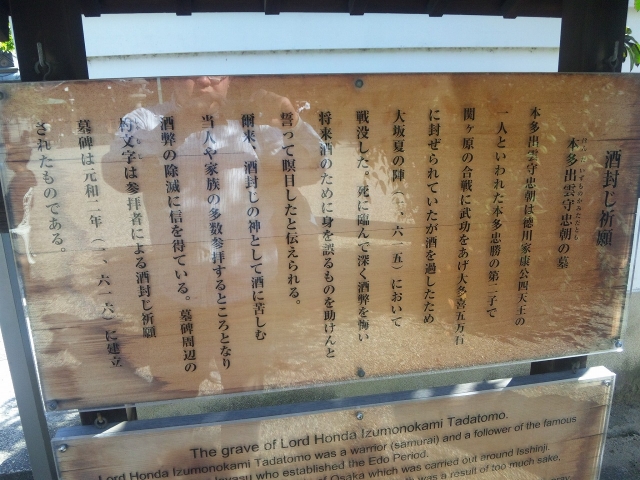 酒封じ祈願
本多出雲守忠朝の墓
本多出雲守忠朝は徳川家康公四天王の
一人といわれた本多忠勝の第二子で
関ヶ原の合戦に武功をあげ大多喜五万石
に封ぜられていたが酒を過したため
大坂夏の陣(一、六一五)において
戦没した。死に臨んで深く酒弊を悔い
将来酒のために身を誤るものを助けんと
誓って瞑目したと伝えられる。
爾来、酒封じの神として酒に苦しむ
当人や家族の多数参拝するところとなり
酒弊の除滅に信を得ている。墓碑周辺の
杓文字は参拝者による酒封じ祈願
墓碑は元和二年(一、六一六)に建立
されたものである。
The grave of Lord Honda Izumonokami Tadatomo.
Lord Honda Izumonokami Tadatomo was a warrior (samurai) and a follower of the famous
who established the Edo Period.
of Osaka which was carried out around Isshinji.
was a result of too much sake.